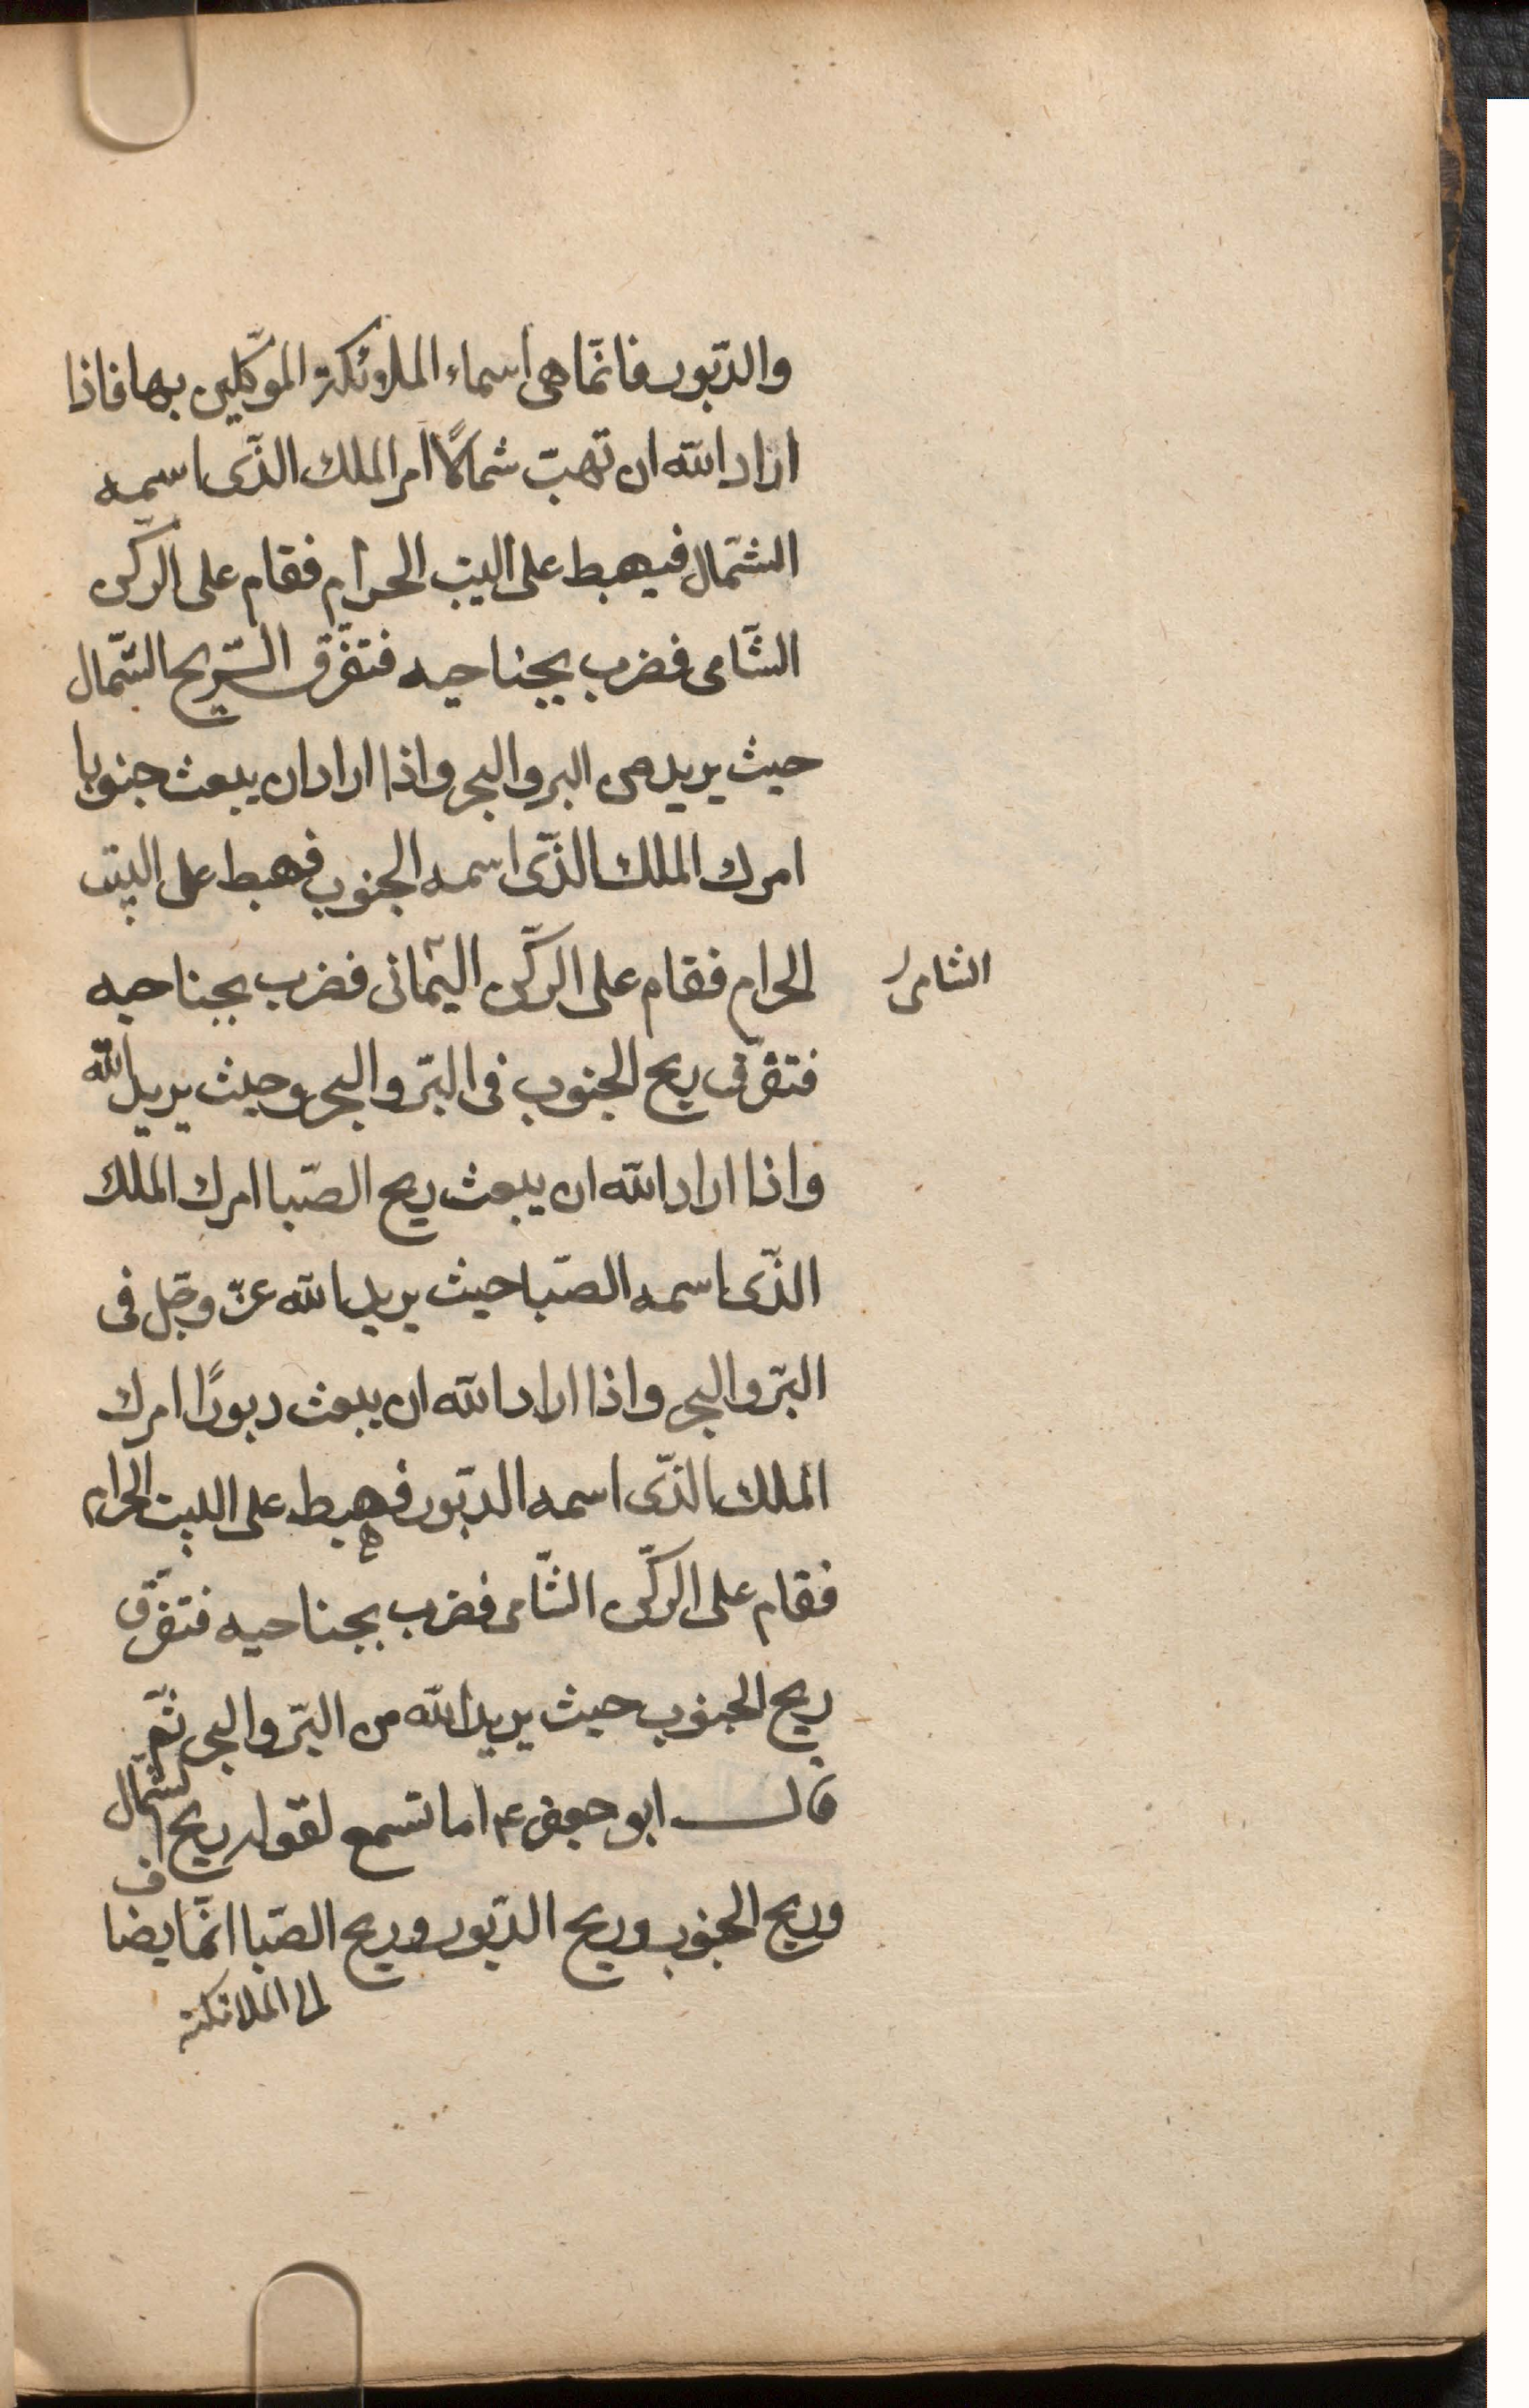 والدّبور فانّما هى اسماء الملائكة الموكّلين بها فاذا
اراد الله ان تهبّ شمالًا امر الملك الذّى اسمه
الشّمال فيهبط على البيت الحرام فقام على الرّكن
الشّامى فضرب بجناحيه فتفرّق الرّيح الشّمال
حيث يريد من البر والبحر واذا اراد ان يبعث جنوبا
امرك الملك الذّى اسمه الجنوب فهبط على البيت
الحرام فقام على الرّكن اليمانى فضرب بجناحيه
الشامى
فتفرّق ريح الجنوب فى البّر والبحر وحيث يريد الله
واذا اراد الله ان يبعث ريح الصّبا امرك الملك
الذّى اسمه الصّبا حيث يريد الله عزّ وجلّ فى
البّر والبحر واذا اراد الله ان يبعث دبورًا امرك
الملك الذّى اسمه الدبّور فهبط على البيت الحرام
فقام على الرّكن الشّامى فضرب بجناحيه فتفرّق
ريح الجنوب حيث يريد الله من البّر والبحر ثمّ
قال ابو جعفر ع اما تسمع لقوله ريح الشمال
وريح الجنوب وريح الدّبور وريح الصّبا انّما يضاف
الملائكة